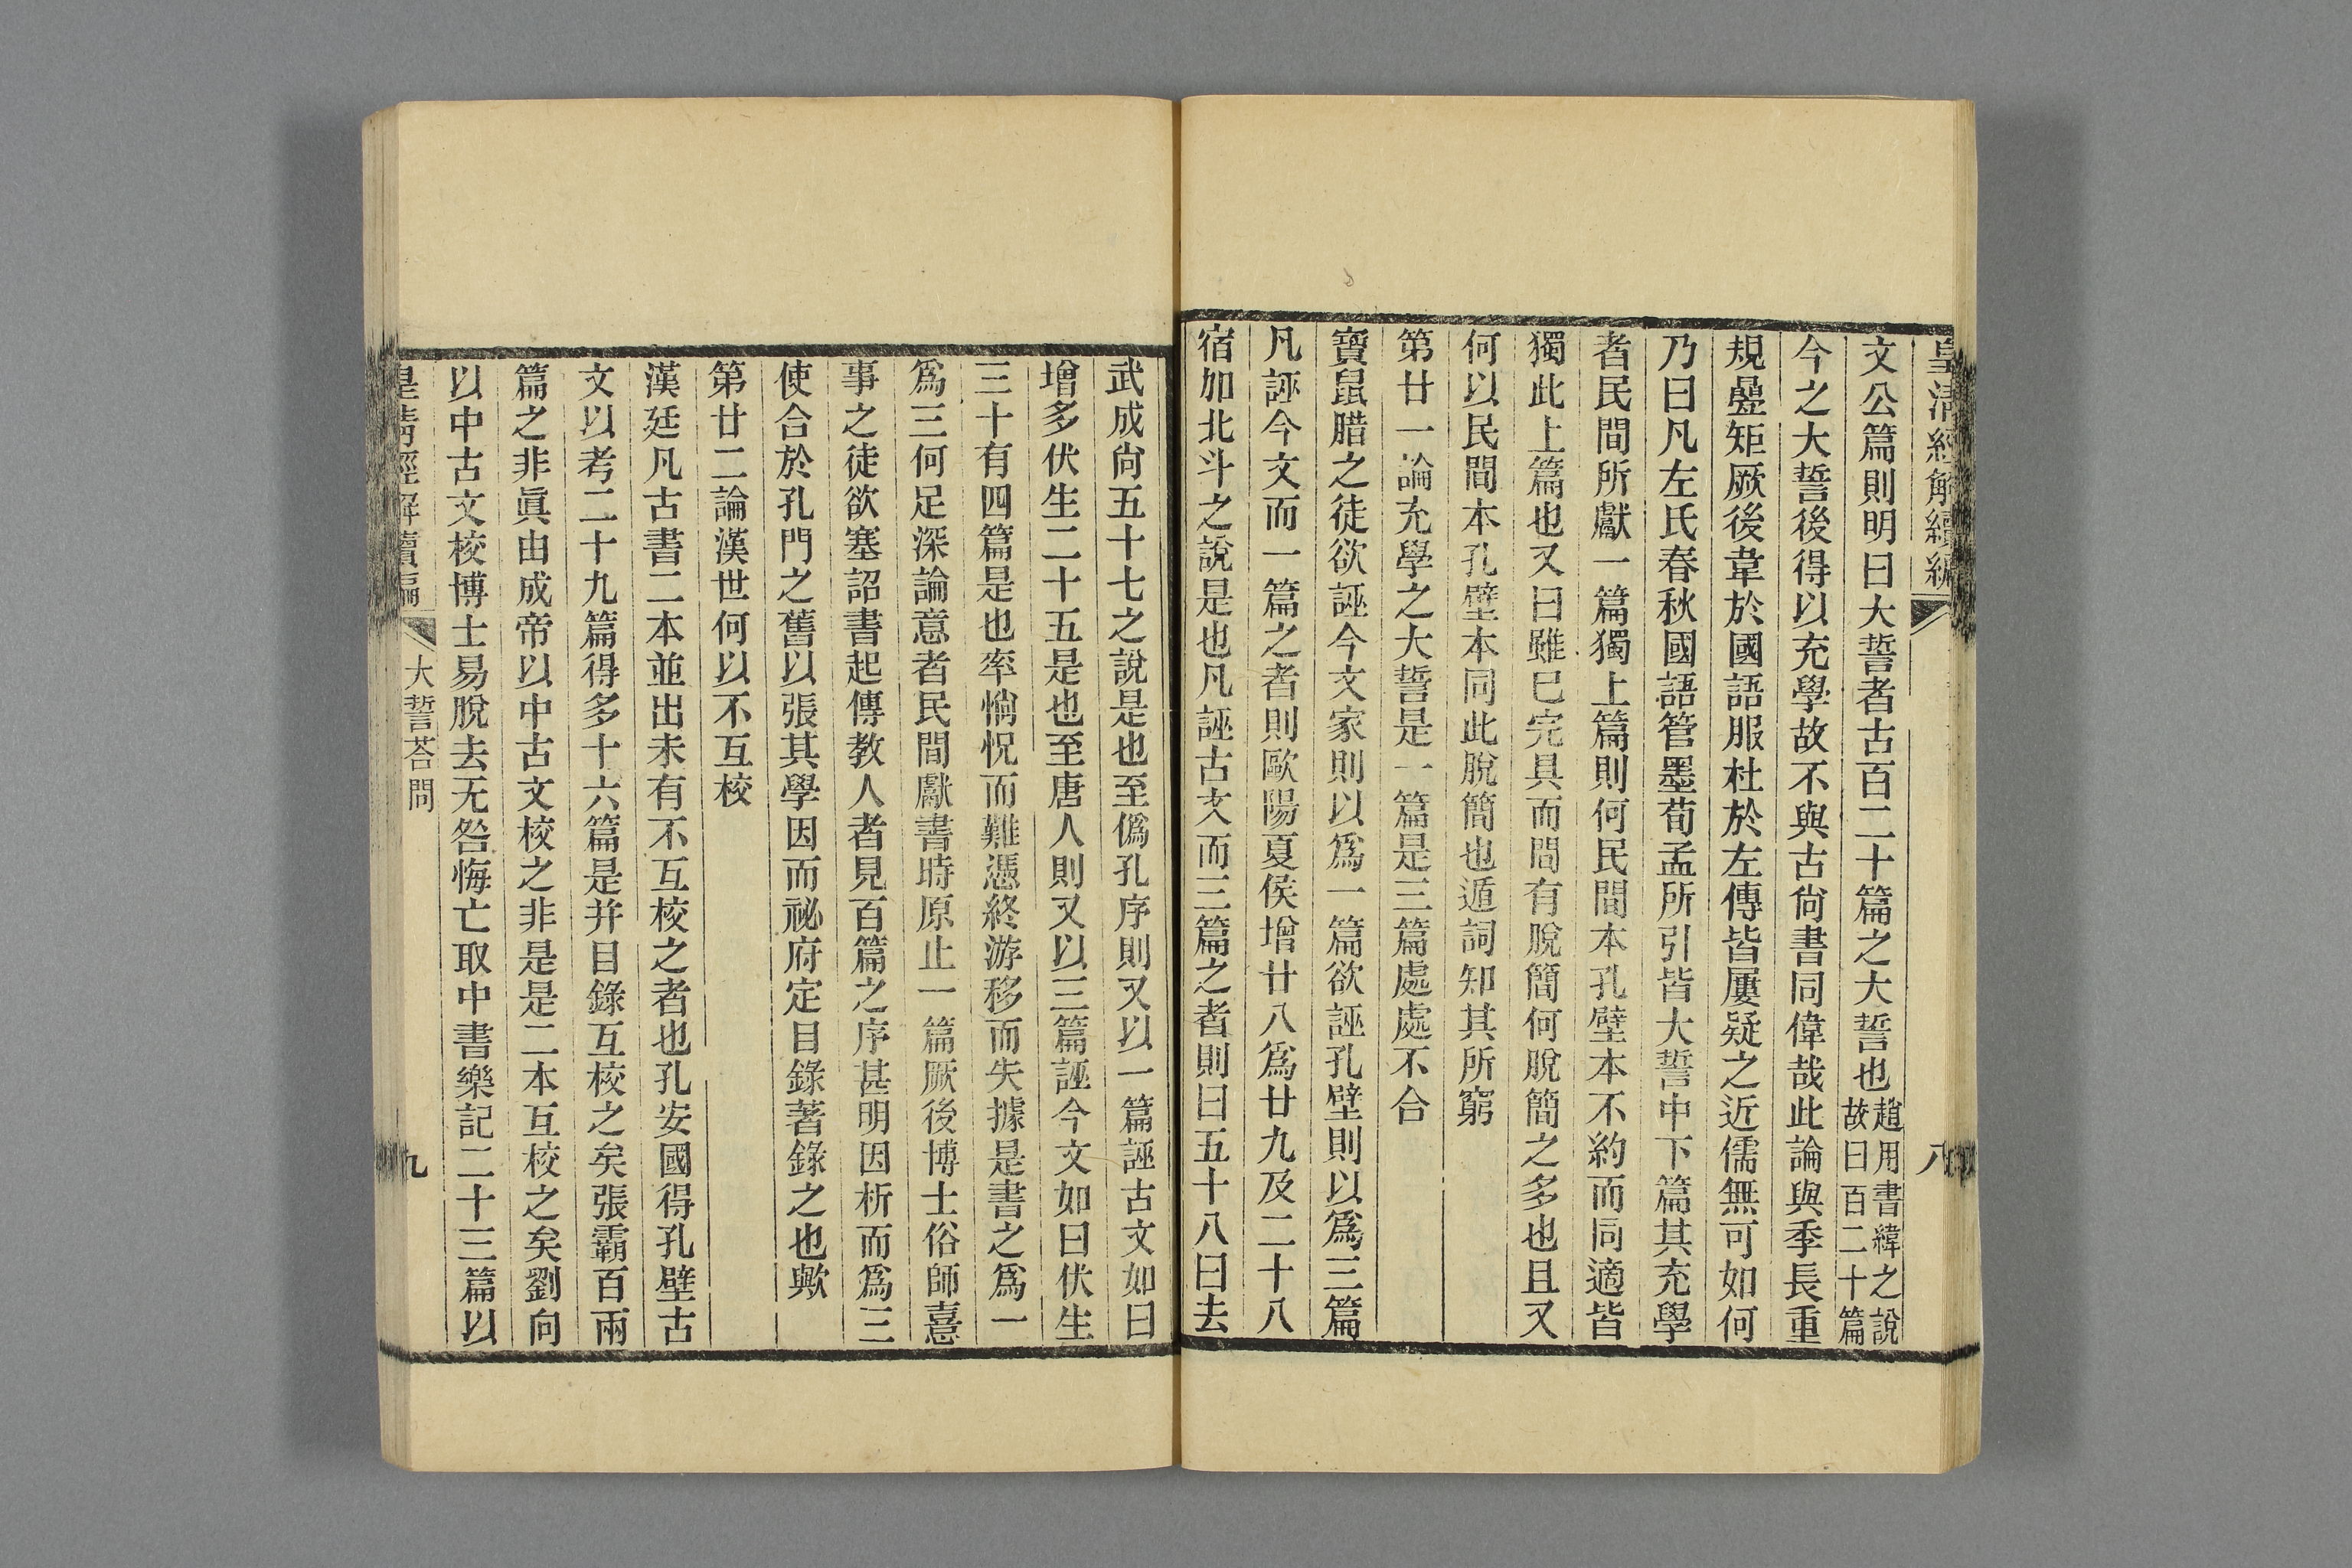 皇清經解續編
八
文公篇則明曰大誓者古百二十篇之大誓也趙用書緯之說故曰百二十篇
今之大誓後得以充學故不與古尙書同偉哉此論與季長重
規曡矩厥後韋於國語服杜於左傳皆屢疑之近儒無可如何
乃曰凡左氏春秋國語管墨荀孟所引皆大誓中下篇其充學
者民間所獻一篇獨上篇則何民間本孔壁本不約而同適皆
獨此上篇也又曰雖已完具而間有脫簡何脫簡之多也且又
何以民間本孔壁本同此脫簡也遁詞知其所窮
第廿一論充學之大誓是一篇是三篇處處不合
寶鼠腊之徒欲誣今文家則以爲一篇欲誣孔壁則以爲三篇
凡誣今文而一篇之者則歐陽夏侯增廿八爲廿九及二十八
宿加北斗之說是也凡誣古文而三篇之者則曰五十八曰去
武成尙五十七之說是也至僞孔序則又以一篇誣古文如曰
增多伏生二十五是也至唐人則又以三篇誣今文如曰伏生
三十有四篇是也率惝怳而難憑終游移而失據是書之爲一
爲三何足深論意者民間獻書時原止一篇厥後博士俗師憙
事之徒欲塞詔書起傳教人者見百篇之序甚明因析而爲三
使合於孔門之舊以張其學因而祕府定目錄著錄之也歟
第廿二論漢世何以不互校
漢廷凡古書二本並出未有不互校之者也孔安國得孔壁古
文以考二十九篇得多十六篇是并目錄互校之矣張霸百兩
篇之非眞由成帝以中古文校之非是是二本互校之矣劉向
以中古文校博士易脫去无咎悔亡取中書樂記二十三篇以
皇清經解續編
大誓荅問
九